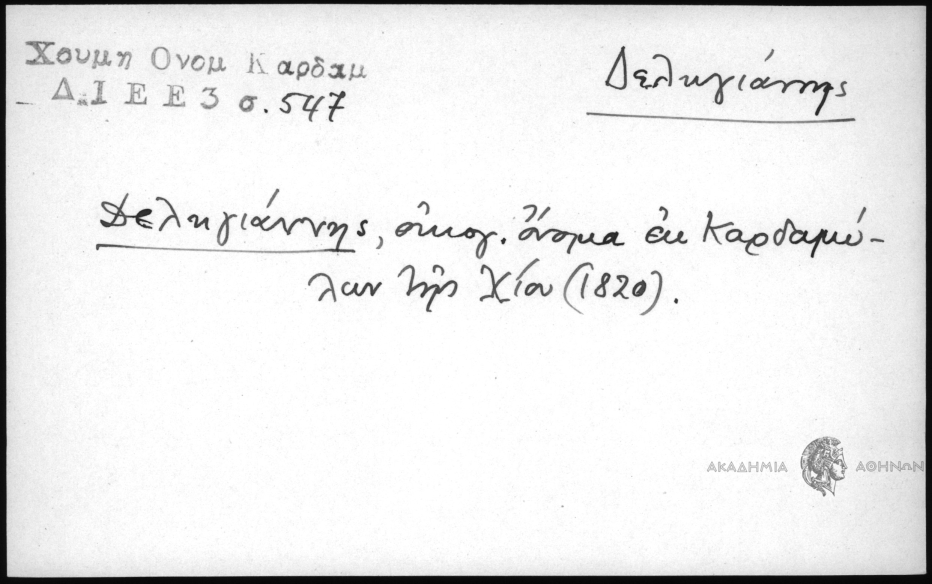 Χουμη Ονομ Καρδαμ
Δ.Ι Ε Ε 3 σ. 547
Δεληγιάννης
Δεληγιάννης, οἰκογ. ὄνομα ἐκ Καρδαμύ-
λων τῆς Χίου (1820).
ΑΚΑΔΗΜΙΑ ΑΘΗΝΩΝ